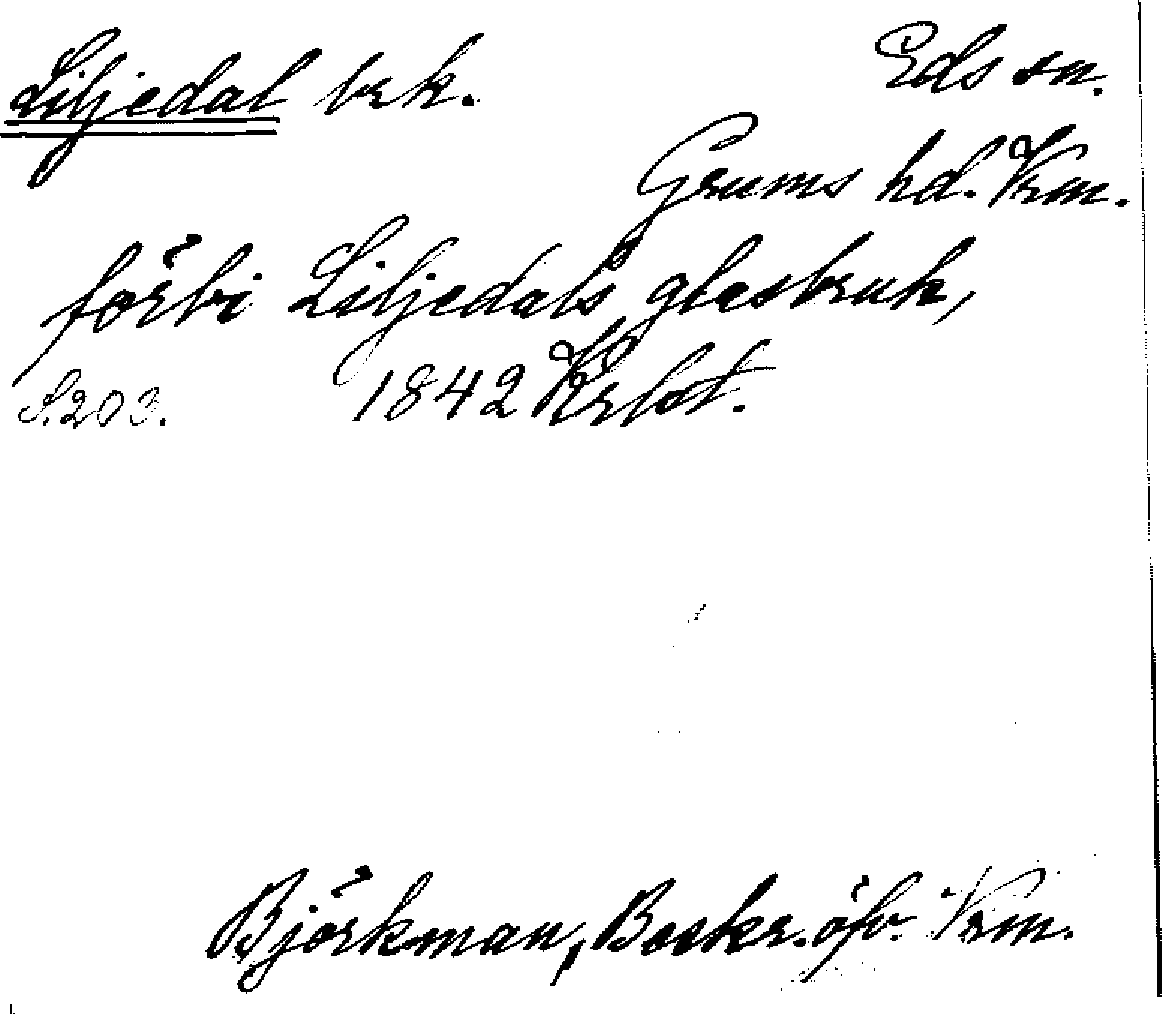 Liljedal brk. Eds sn.
Grums hd. Vrm.
förbi Liljedals glasbruk,
S. 203. 1842
Björkman, Beskr. öfv. Vrm.